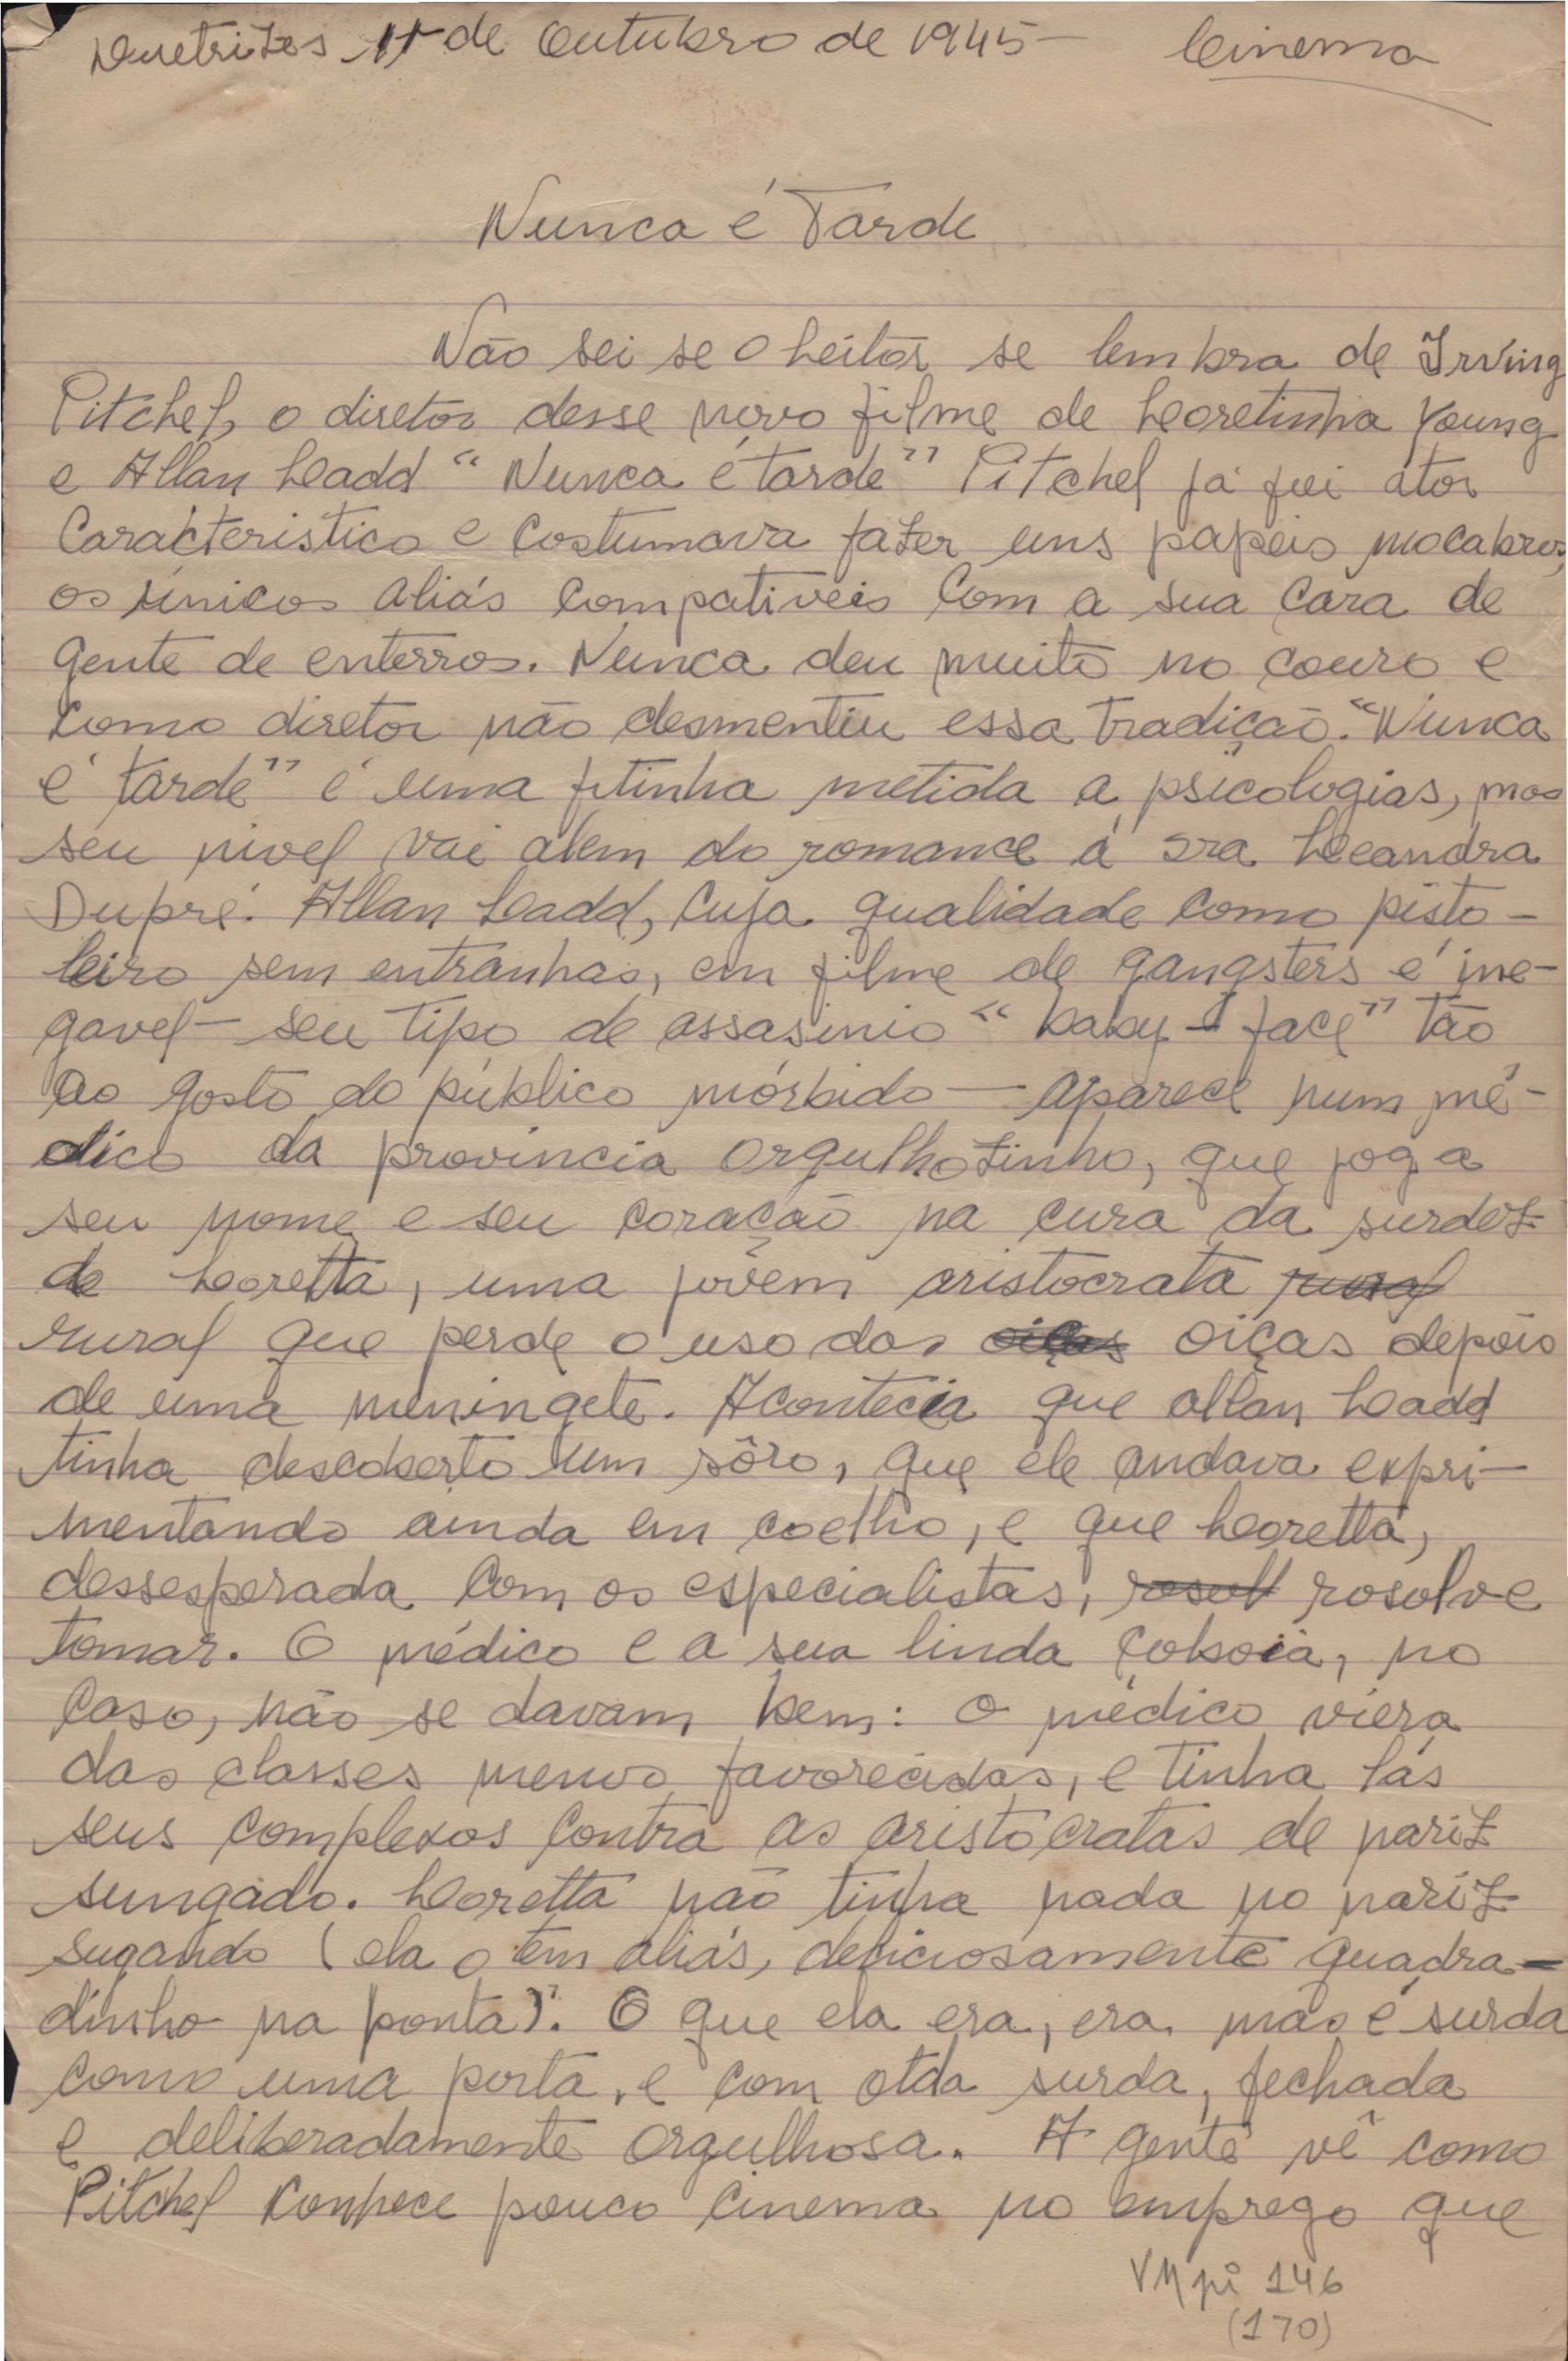 Duetrizes 11 de Outubro de 1945 - Cinema
Nunca é Tarde
Não sei se o leitor se lembra de Irving
Pitchel, o diretor desse novo filme de Loretinha Young
e Allan Ladd "Nunca é tarde" Pitchel já foi átor
Caracteristico e costumava fazer uns papeis macabros,
os únicos aliás compativeis com a sua cara de
gente de enterros. Nunca deu muito no couro e
como diretor não desmentiu essa tradição. "Nunca
é tarde" é uma fitinha metida a psicologias, mas
seu nivel vai alem do romance á sra Leandra
Dupré. Allan Ladd, cuja qualidade como pisto-
leiro sem entranhas, em filme de gangsters é ine-
gavel - seu tipo de assasinio "baby - face" tão
ao gosto do público mórbido — aparece num mé-
dico da provincia orgulhozinho, que joga
seu nome e seu coração na cura da surdez
de Loretta, uma jovem aristocrata rural
rural que perde o uso das oiças oiças depois
de uma meningete. Acontecia que allan Ladd
tinha descoberto um sôro, que ele andava expri-
mentando ainda em coelho, e que Loretta,
dessesperada com os especialistas, rosolv rosolve
tomar. O médico e a sua linda çobaia, no
caso, não se davam bem: o médico viera
das classes menos favorecidas, e tinha lás
seus complexos contra as aristocratas de nariz
sungado. Loretta não tinha nada no nariz
sugando (ela o tem aliás, deliciosamente quadra-
dinho na ponta). O que ela era, era mas é surda
como uma porta, e com otda surda, fechada
e deliberadamente orgulhosa. A gente vê como
Pitchel conhece pouco cinema no emprego que
VM pi 146
(170)